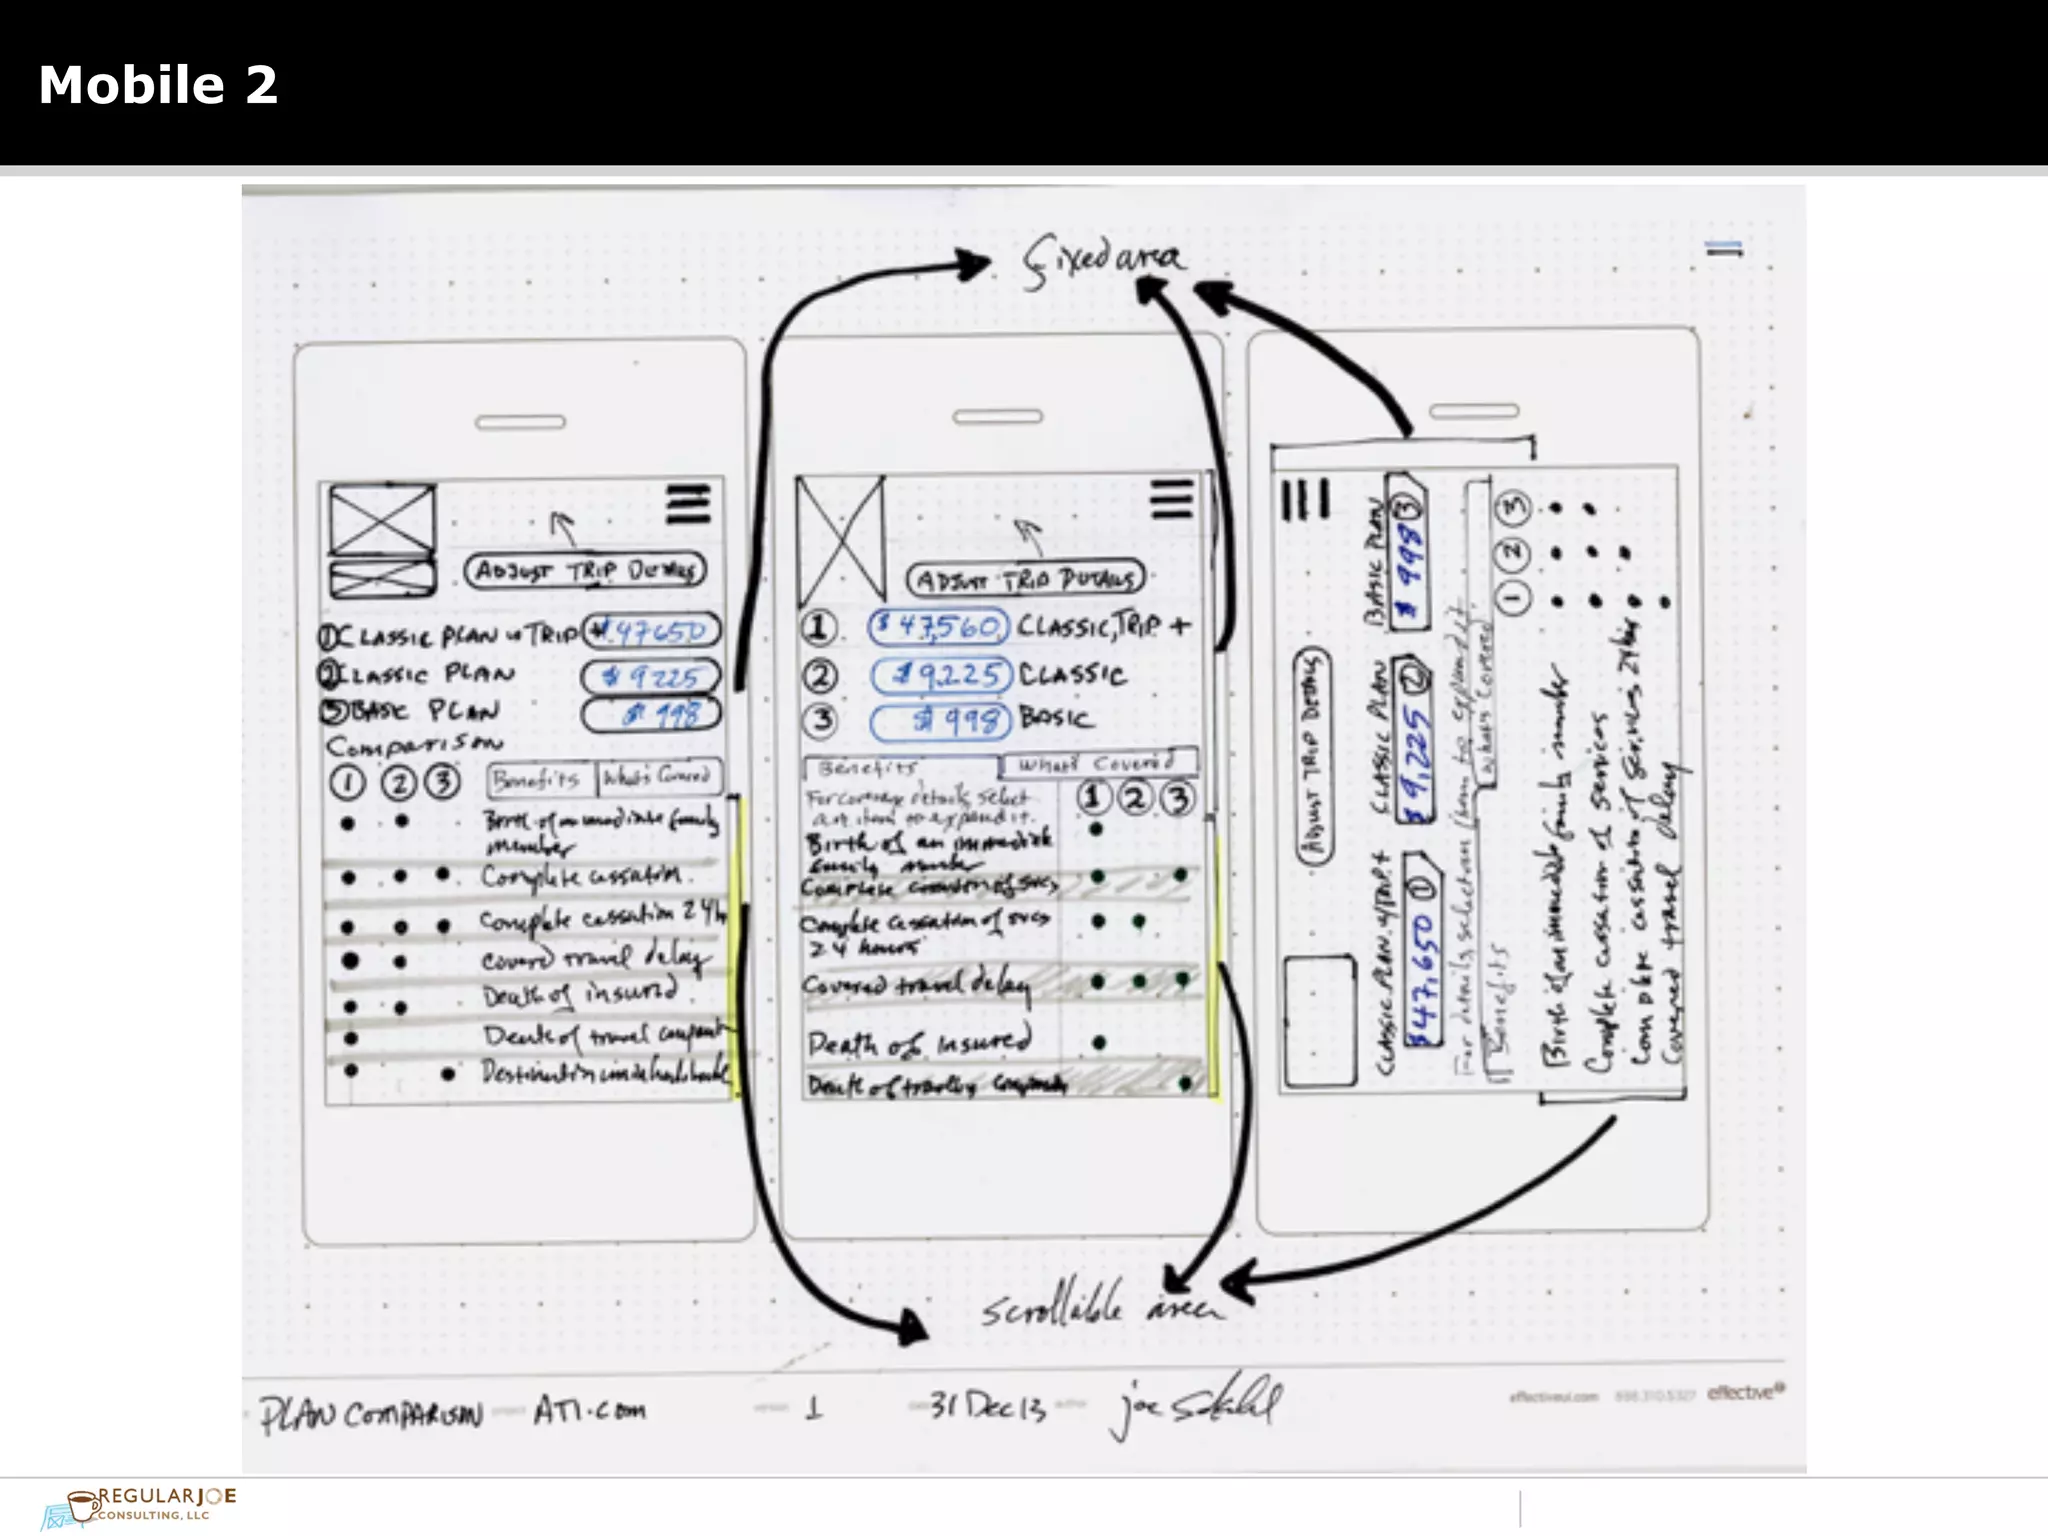 Mobile 2
fixed area
ADJUST TRIP DETAILS
① CLASSIC PLAN w TRIP + $47650
② CLASSIC PLAN $9225
③ BASIC PLAN $998
Comparison
① ② ③ Benefits What's Covered
Birth of an immediate family
member
Complete cessation.
Complete cessation 24hr
Covered travel delay
Death of insured.
Death of travel
Destination
ADJUST TRIP DETAILS
① $47,560 CLASSIC, TRIP +
② $9,225 CLASSIC
③ $998 BASIC
Benefits What's Covered
For coverage details, select
an item to expand it.
① ② ③
Birth of an immediate
family member
Complete cessation of svcs
Complete cessation of svcs
24 hours
Covered travel delay
Death of insured
Death of
ADJUST TRIP DETAILS
CLASSIC PLAN w/TRIP + CLASSIC PLAN BASIC PLAN
$47,650 ① $9,225 ② $998 ③
For details, select an item to expand it.
Benefits What's Covered
① ② ③
Birth of an immediate family member
Complete cessation of services
Complete cessation of services 24hrs
Covered travel delay
scrollable area
PLAN COMPARISON ATI.com 1 31 Dec 13 joe
effectiveui.com effective
REGULARJOE
CONSULTING, LLC